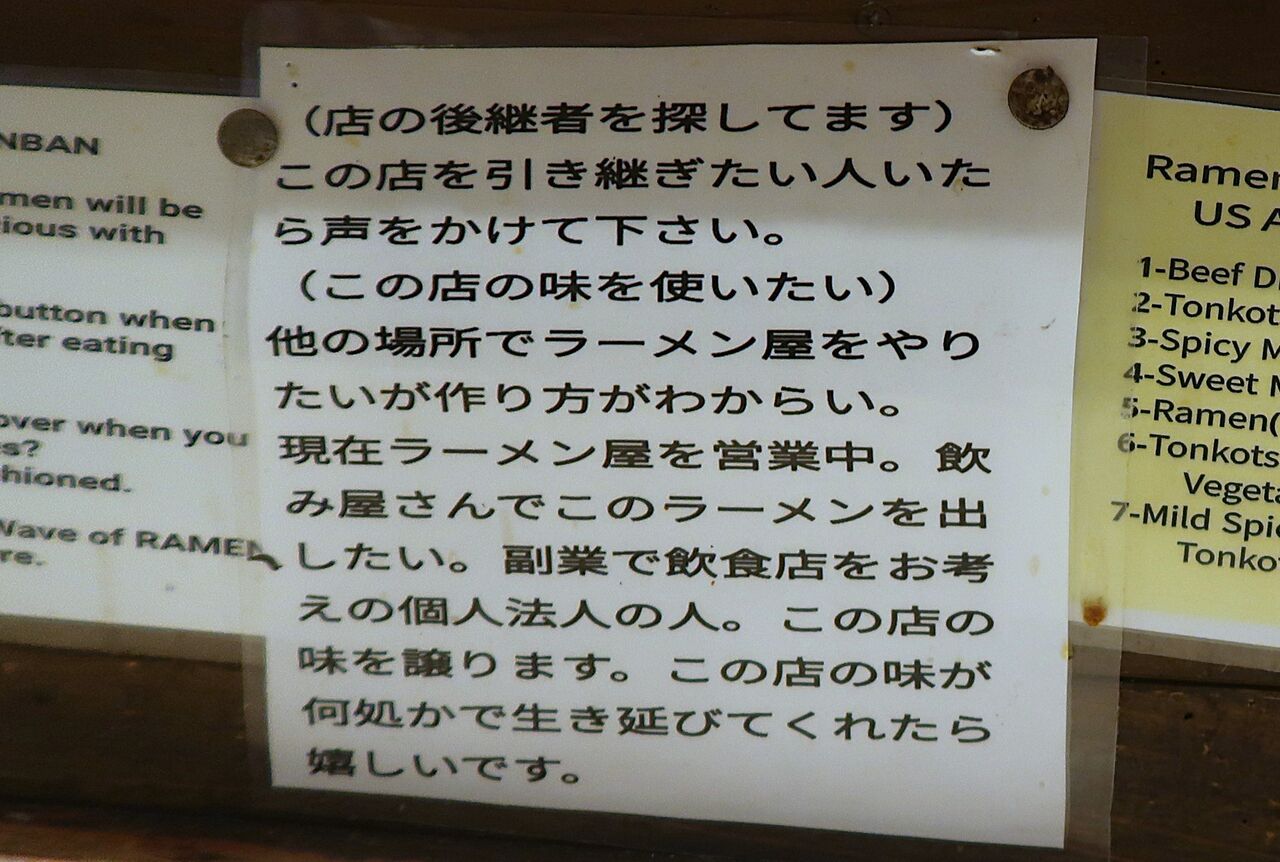 NBAN
men will be
ious with
button when
fter eating
over when you
s?
hioned.
Wave of RAMEN
re.
（店の後継者を探してます）
この店を引き継ぎたい人いた
ら声をかけて下さい。
（この店の味を使いたい）
他の場所でラーメン屋をやり
たいが作り方がわからい。
現在ラーメン屋を営業中。飲
み屋さんでこのラーメンを出
したい。副業で飲食店をお考
えの個人法人の人。この店の
味を譲ります。この店の味が
何処かで生き延びてくれたら
嬉しいです。
Ramen
US A
1-Beef D
2-Tonkot
3-Spicy M
4-Sweet M
5-Ramen(
6-Tonkots
Vegeta
7-Mild Spic
Tonko